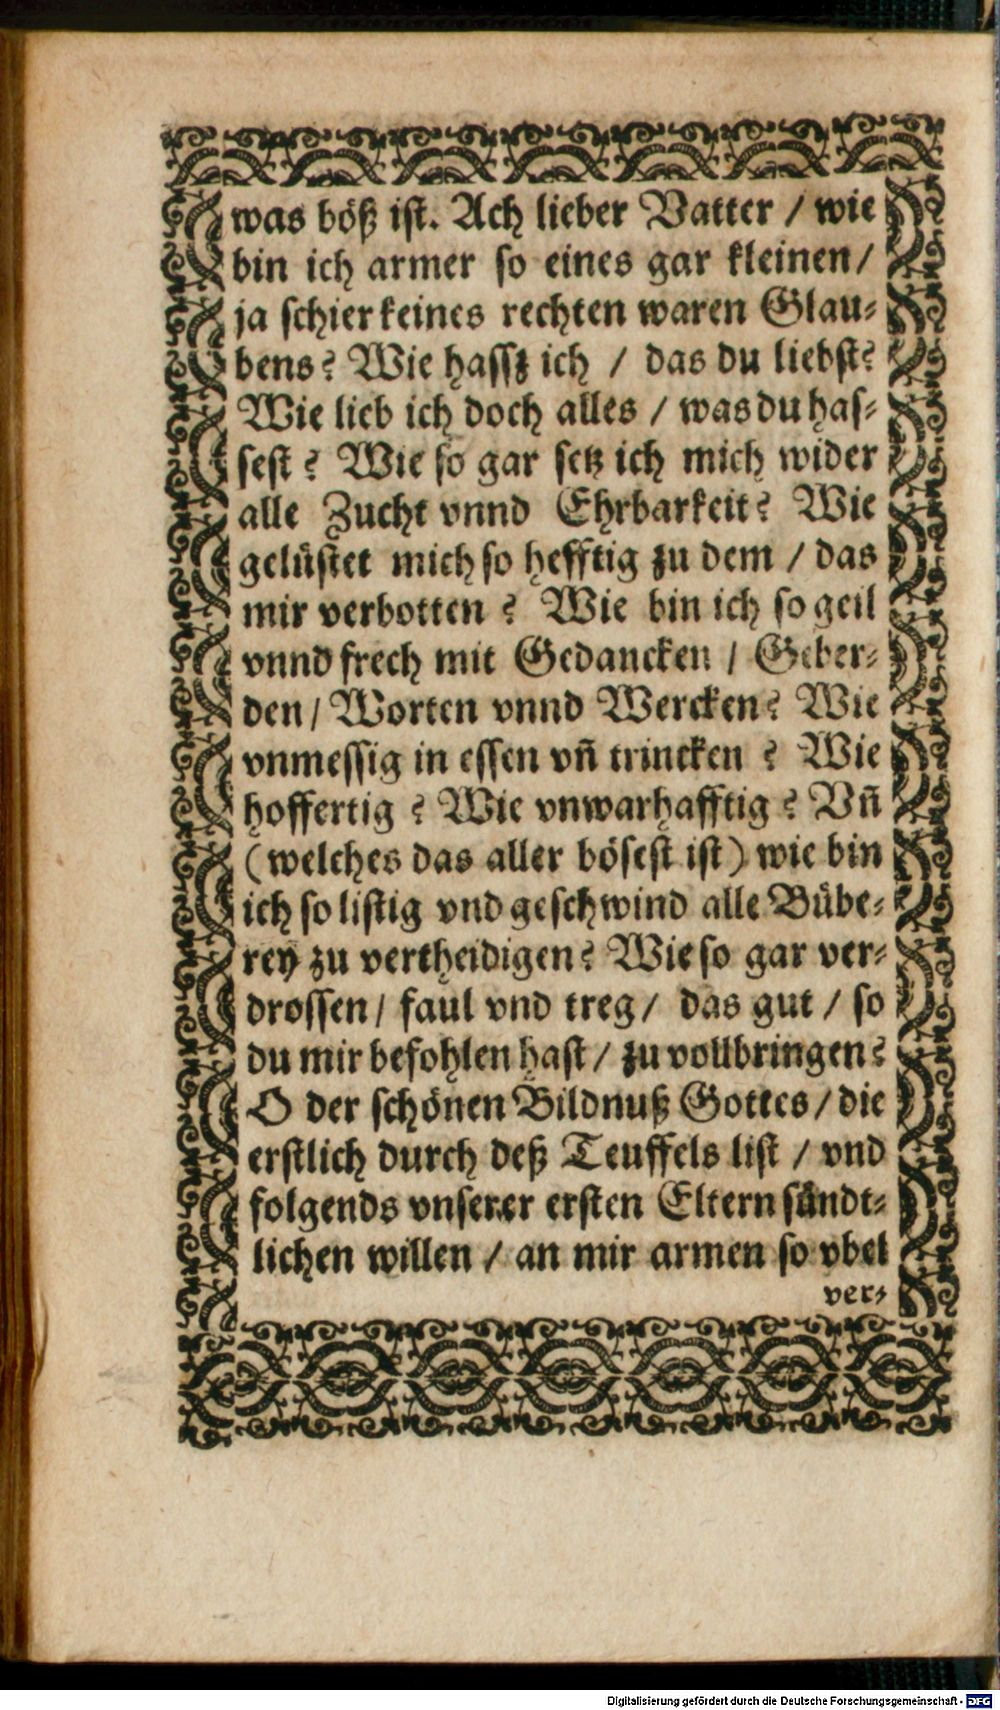 was böß ist. Ach lieber Vatter / wie
bin ich armer so eines gar kleinen /
ja schier keines rechten waren Glau-
bens? Wie hassz ich / das du liebst?
Wie lieb ich doch alles / was du has-
sest? Wie so gar setz ich mich wider
alle Zucht vnnd Ehrbarkeit? Wie
gelüstet mich so hefftig zu dem / das
mir verbotten? Wie bin ich so geil
vnnd frech mit Gedancken / Geber-
den / Worten vnnd Wercken? Wie
vnmessig in essen vñ trincken? Wie
hoffertig? Wie vnwarhafftig? Vñ
(welches das aller bösest ist) wie bin
ich so listig vnd geschwind alle Bübe-
rey zu vertheidigen? Wie so gar ver-
drossen / faul vnd treg / das gut / so
du mir befohlen hast / zu vollbringen?
O der schönen Bildnuß Gottes / die
erstlich durch deß Teuffels list / vnd
folgends vnserer ersten Eltern sündt-
lichen willen / an mir armen so vbel
ver-
Digitalisierung gefördert durch die Deutsche Forschungsgemeinschaft - DFG